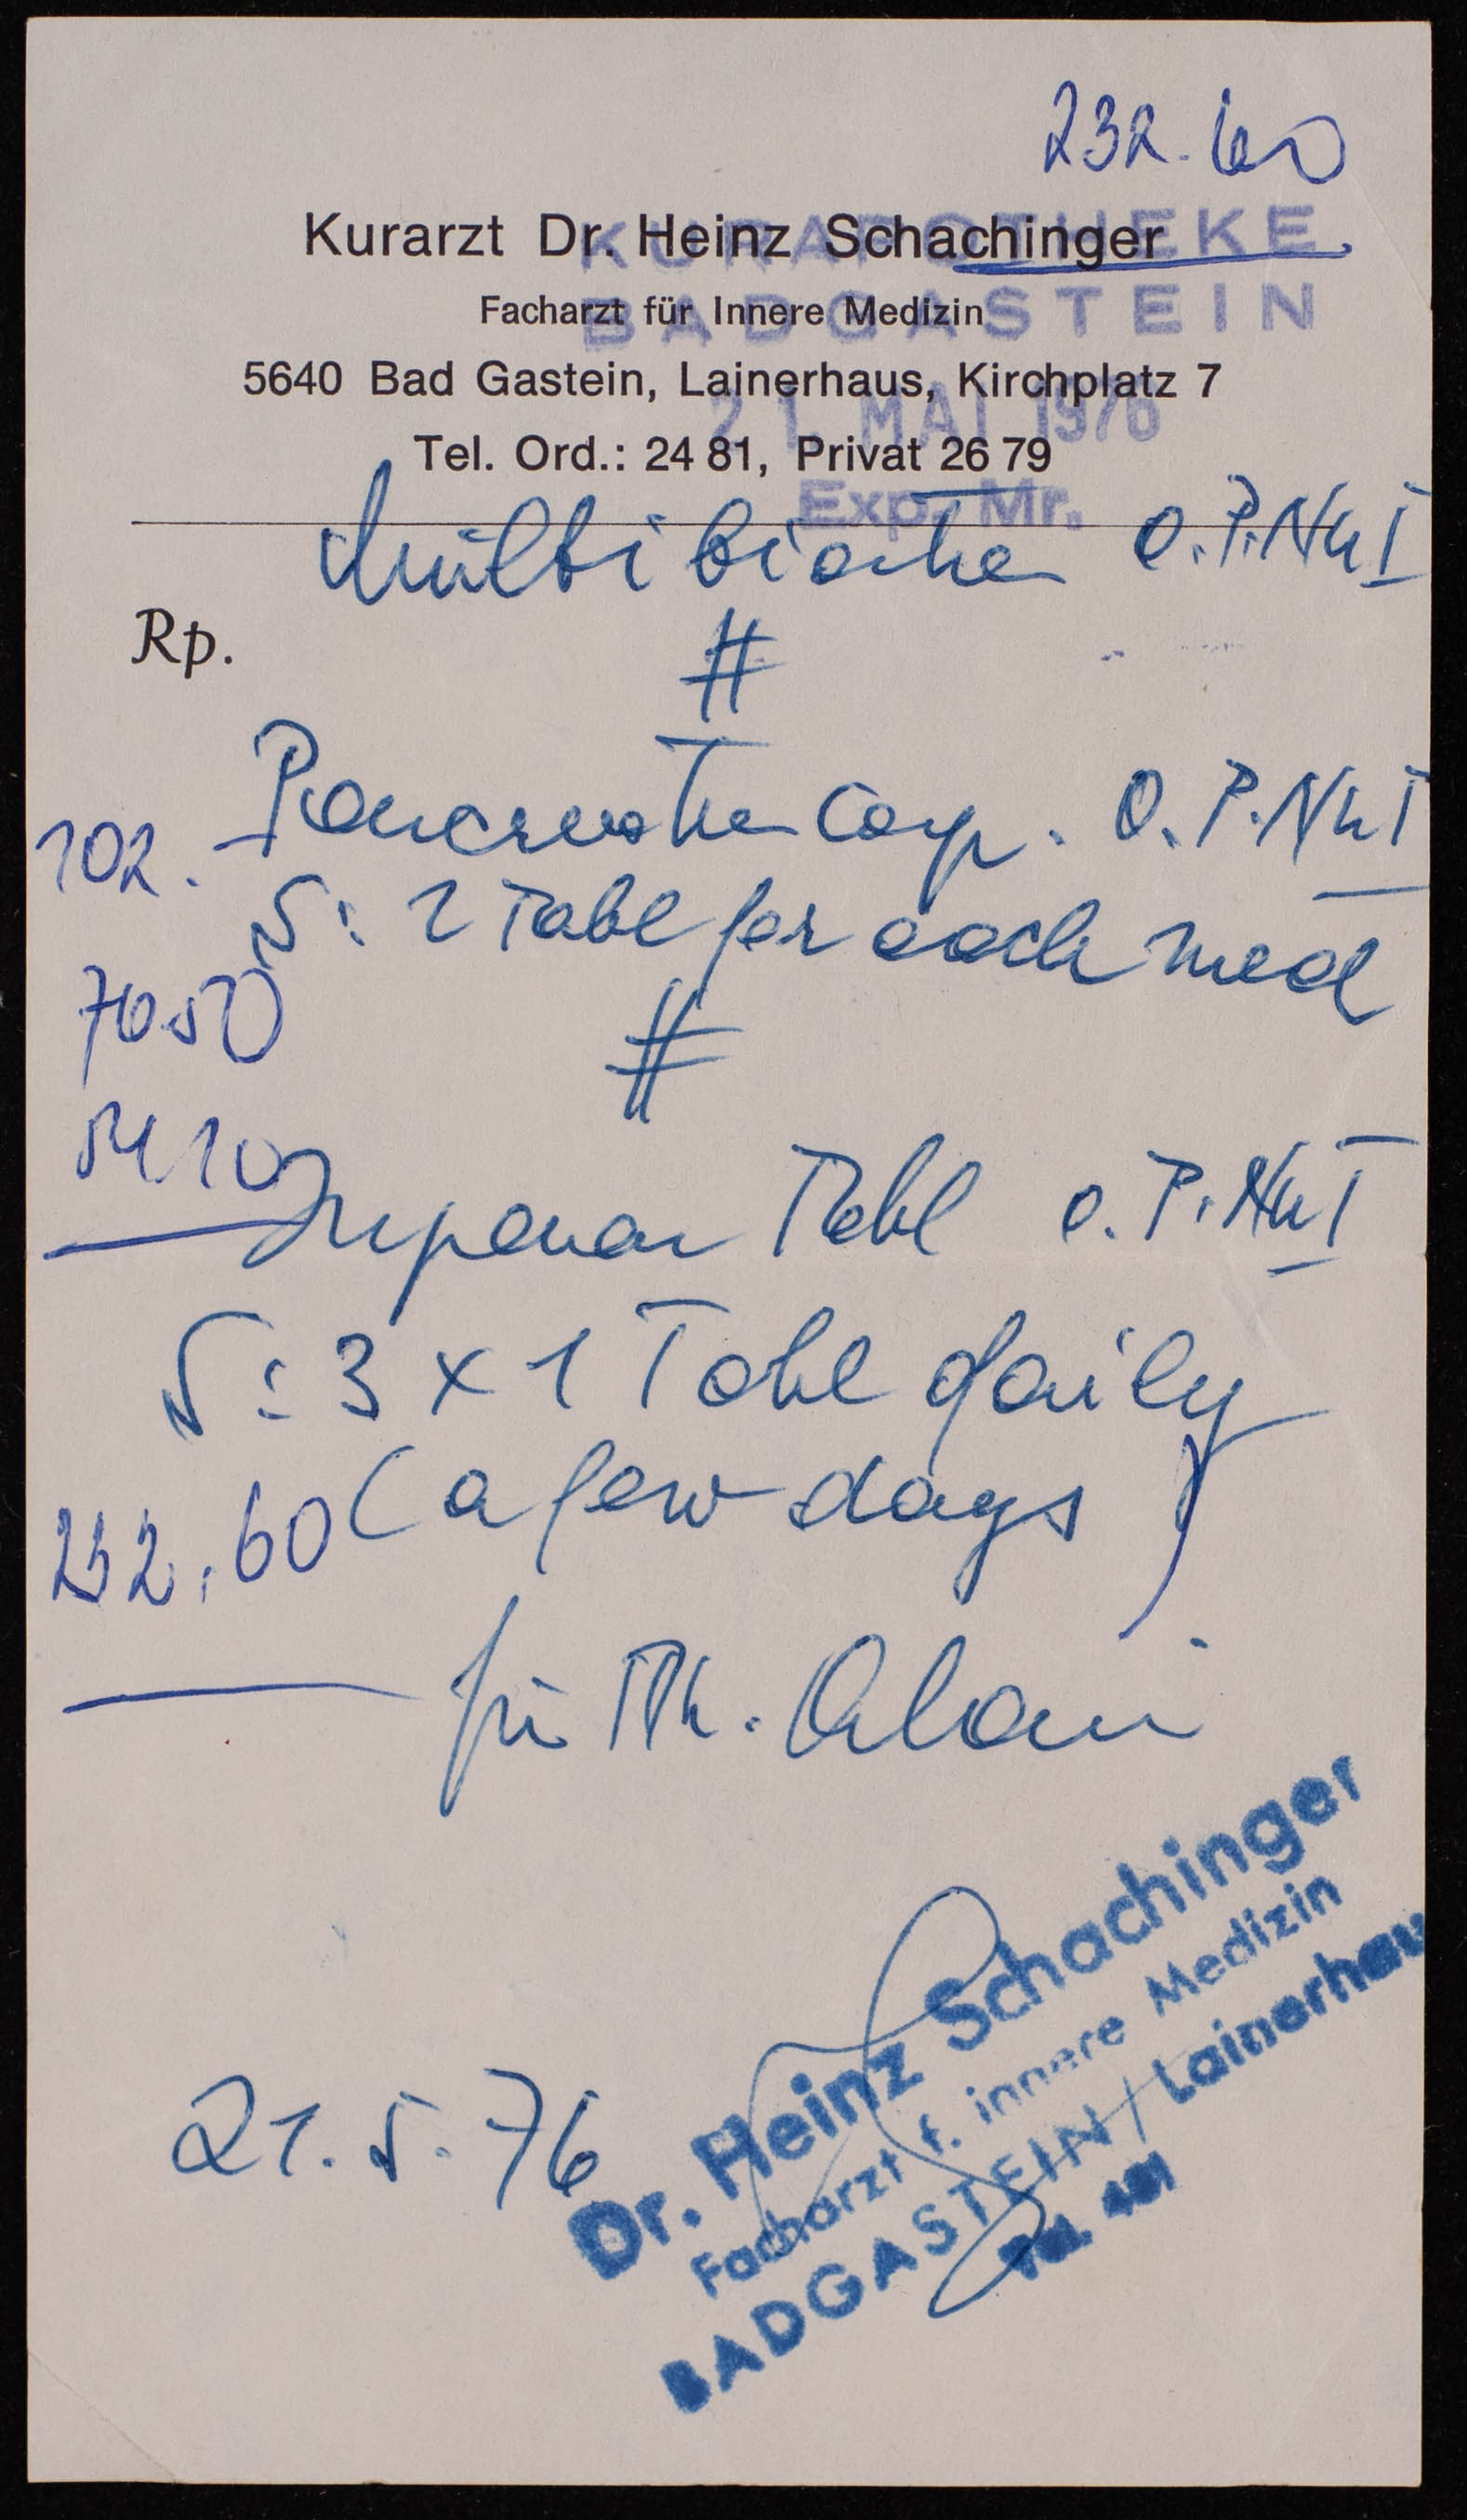 232.60
Kurarzt Dr. Heinz Schachinger
KURAPOTHEKE
Facharzt für Innere Medizin
BADGASTEIN
5640 Bad Gastein, Lainerhaus, Kirchplatz 7
21. MAI 1976
Tel. Ord.: 24 81, Privat 26 79
Exp. Mr.
O.P. No I
Rp.
#
102.
comp. O.P. No I
S: 2 Tabl for each meal
70.50
#
Tabl O.P. No I
S: 3 x 1 Tabl daily
(a few days)
232.60
für
21.5.76
Dr. Heinz Schachinger
Facharzt f. innere Medizin
BADGASTEIN / Lainerhau
Tel. 481